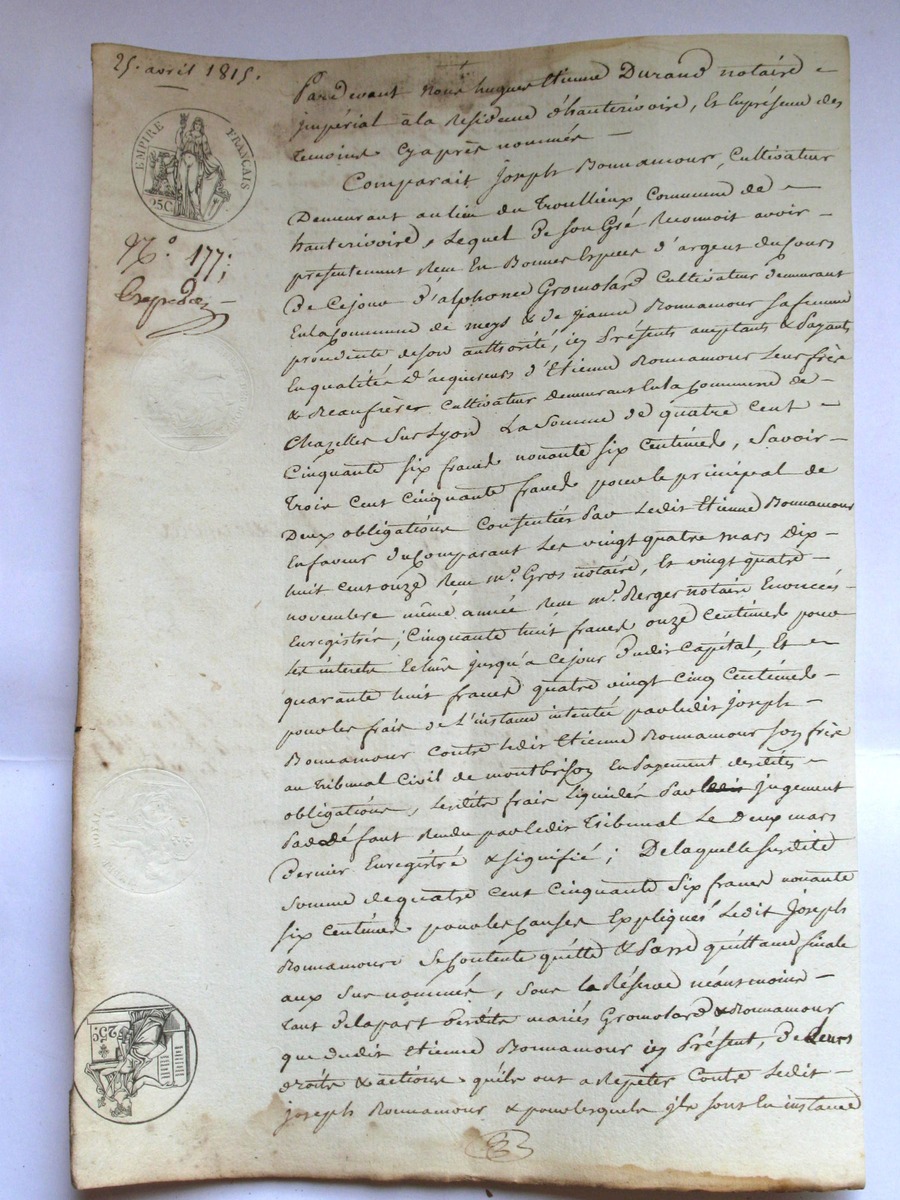 25. avril 1815.
EMPIRE FRANÇAIS
25C
N.o 177:
Expédiée
Pardevant Nous hugues Etienne Durand notaire
impérial à la Residence d'hauterivoire, Et En présence des
temoins Cyaprès nommés
Comparait Joseph Bonnamour, Cultivateur
Demeurant au lieu du Troullieux Commune de
hauterivoire, Lequel De son Gré Reconnoit avoir
présentement Reçu En Bonnes Espèces d'argent du Cours
De Ce jour d'alphonse Gromolard Cultivateur demeurant
En la Commune de meys & de jeanne Bonnamour Sa femme
procédente de son authorité, icy Présents acceptants & Payants
En qualité d'acquéreurs d'Etienne Bonnamour Leur frère
& Beaufrère Cultivateur demeurant En la Commune de
Chazelles Sur Lyon La Somme de quatre Cent
Cinquante six francs nonante six Centimes, Savoir
trois Cent Cinquante francs pour le principal de
Deux obligations Consenties Par Ledit Etienne Bonnamour
En faveur du Comparant Les vingt quatre mars Dix
huit cent onze Reçue m.e Gros notaire, Et vingt quatre
novembre même année Reçue m.e Berger notaire Enoncées
Enregistrées; Cinquante huit francs onze Centimes pour
les intérets Echus jusqu'à Ce jour dudit Capital, Et
quarante huit francs quatre vingt cinq Centimes
pour les frais de L'instance intentée par ledit joseph
Bonnamour Contre Ledit Etienne Bonnamour Son frère
au Tribunal Civil de montbrison En Payement desdites
obligations, Lesdits frais Liquidés Par jugement
Par défaut Rendu par ledit Tribunal Le Deux mars
dernier Enregistré & signifié; De laquelle Susdite
Somme de quatre Cent Cinquante Six francs nonante
Six Centimes pour les Causes Expliquées Ledit Joseph
Bonnamour Se Contente quitte & Passe quittance finale
aux Sus nommés, Sous la Réserve néantmoins
tant De la part desdits mariés Gromolard & Bonnamour
que dudit Etienne Bonnamour icy Présent, De Leurs
droits & actions qu'ils ont à Répéter Contre Ledit
joseph Bonnamour & pour lesquels ils sont En instance
ROYAL
25C